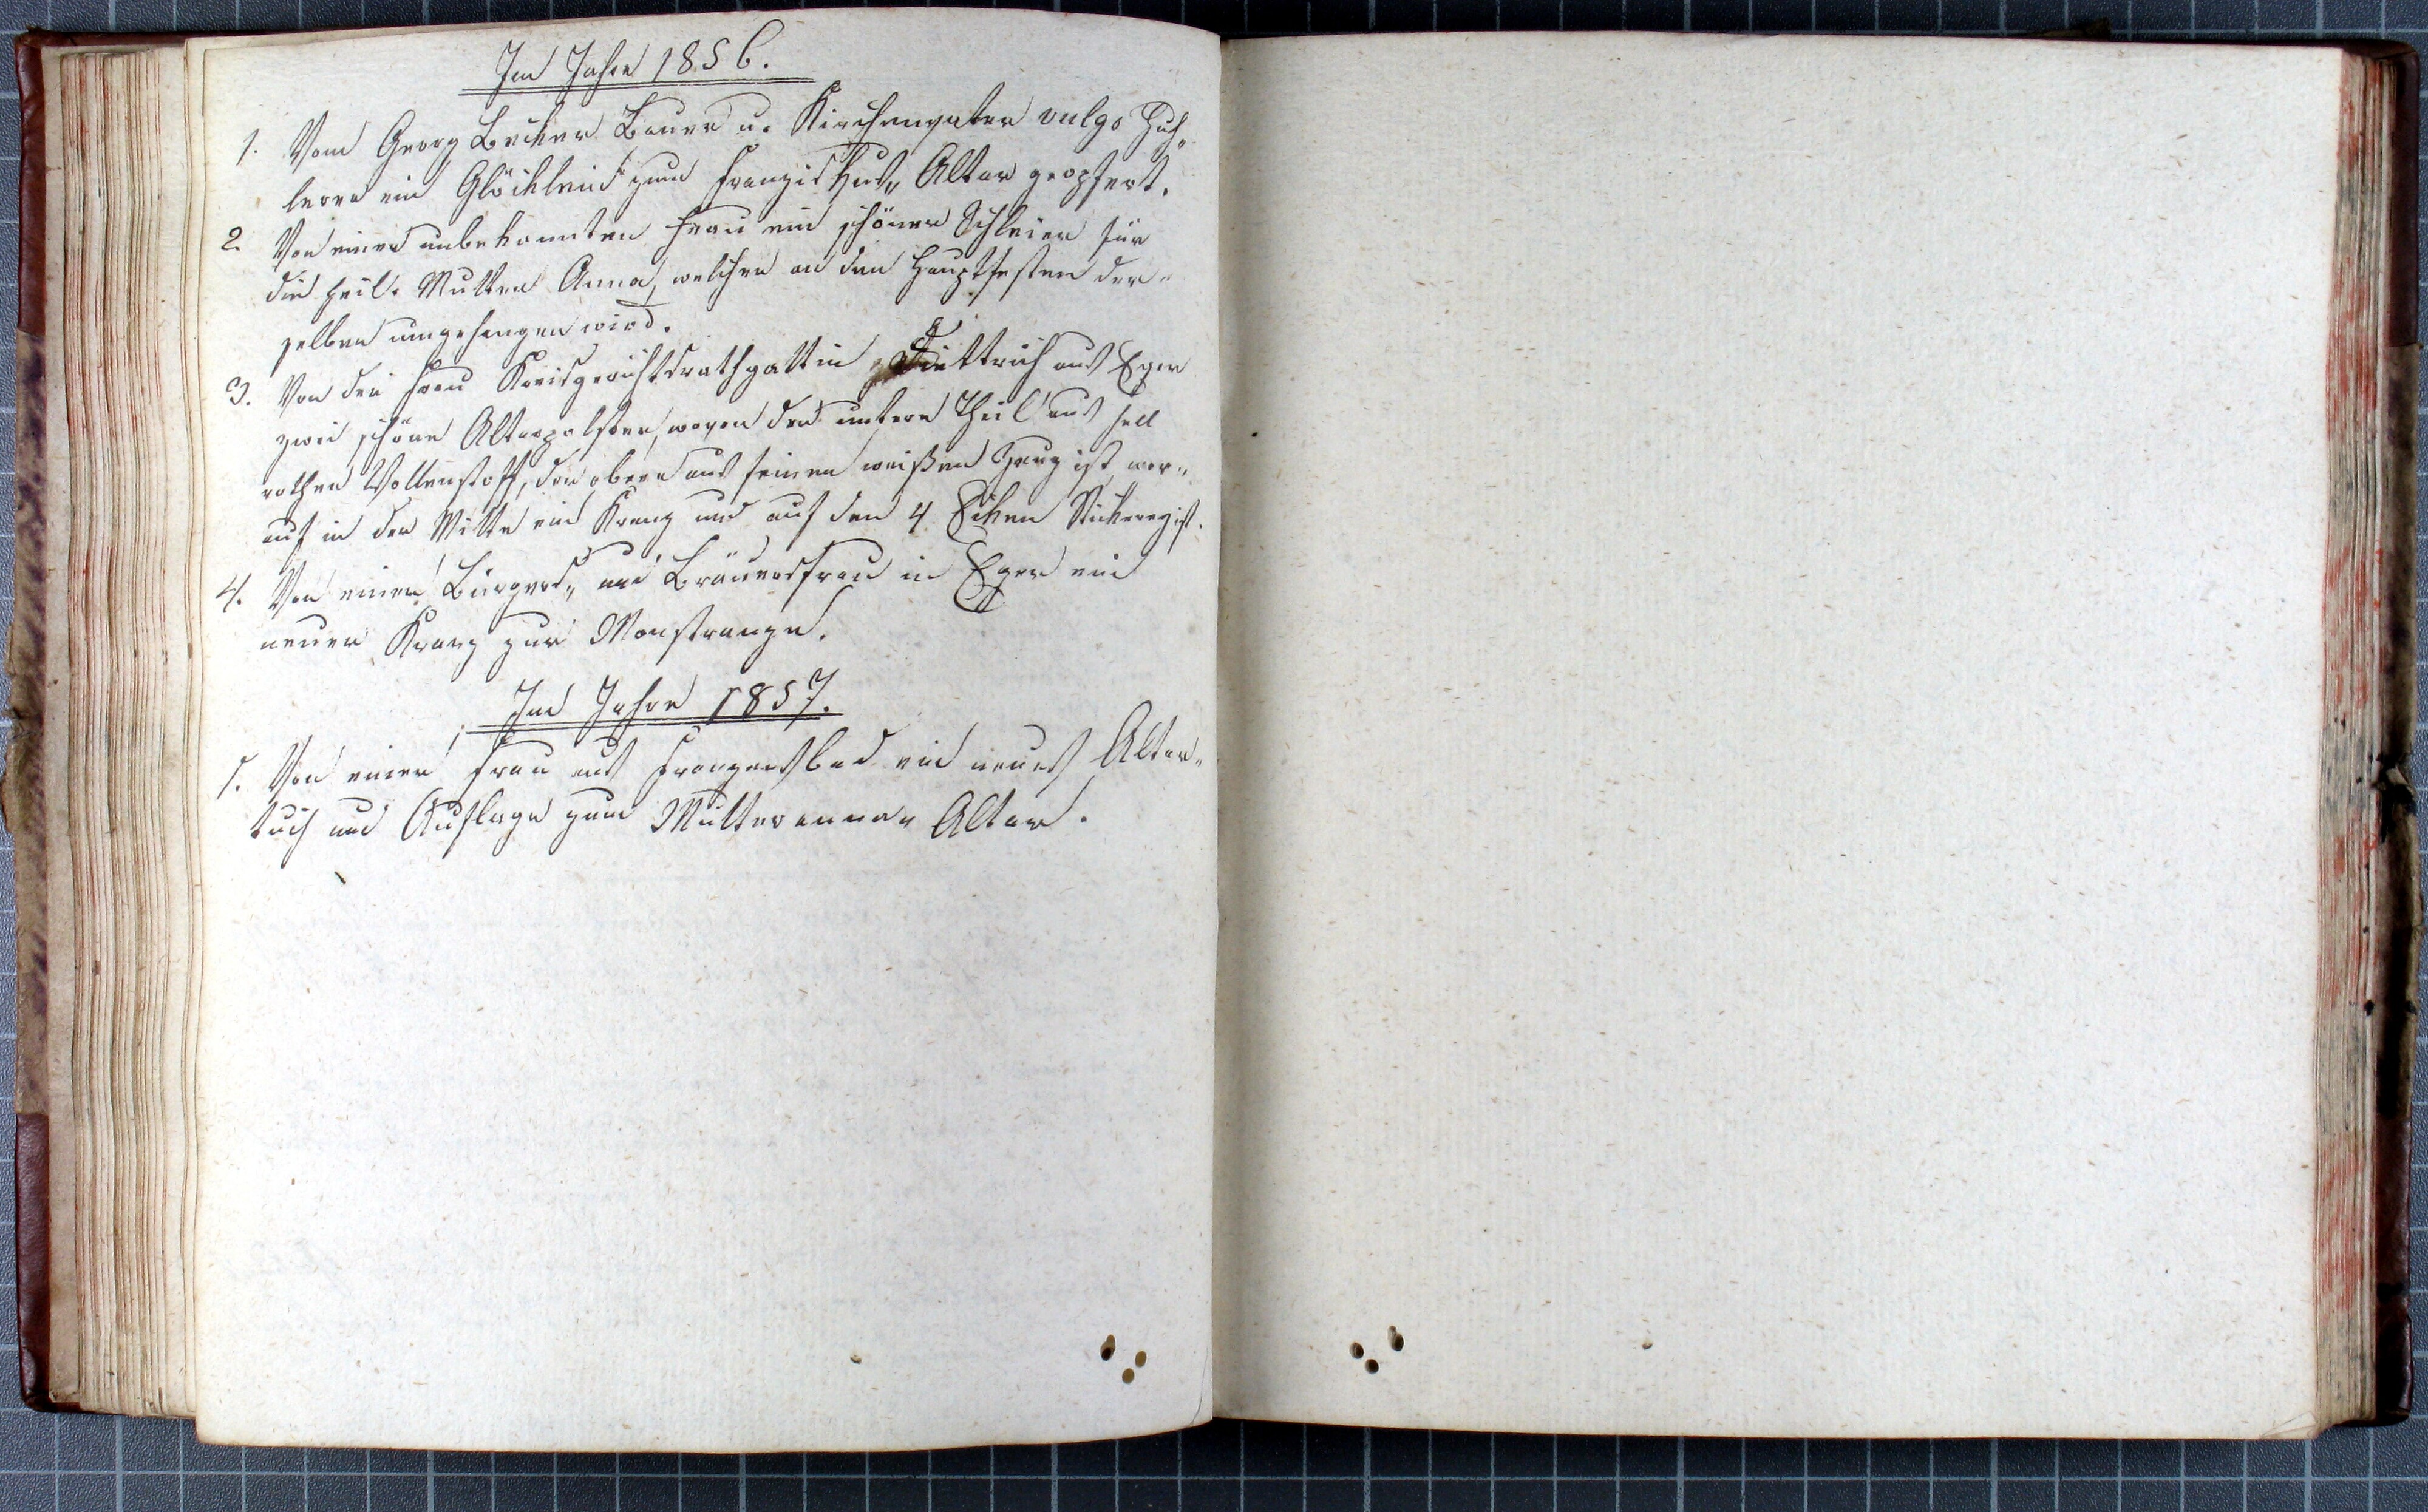 Im Jahre 1856.
1. Vom Georg Becker Bauer u. Kirchenvater vulgo
ein Glöcklein zum Franziskus„ Altar geopfert.
2. Von einer unbekannten Frau ein schöner Schleier für
die heil. Mutter Anna, welcher an den Hauptfesten der„
selben umgehangen wird.
3. Von der Frau Kreisgerichtsrathgattin Diettrich aus Eger
zwei schöne Altarpolster, wovon der untere Theil aus hell
rothen Wollenstoff, der obere aus feinen weißen Zeug ist, wor„
auf in der Mitte ein Kreuz und auf den 4 Ecken Stickerey ist.
4. Von einer Bürgers„ und Bräuersfrau in Eger ein
neuer Kranz zur Monstranze.
Im Jahre 1857.
1. Von einer Frau aus Franzensbad ein neues Altar„
tuch und Auflage zum Mutteranna„ Altar.